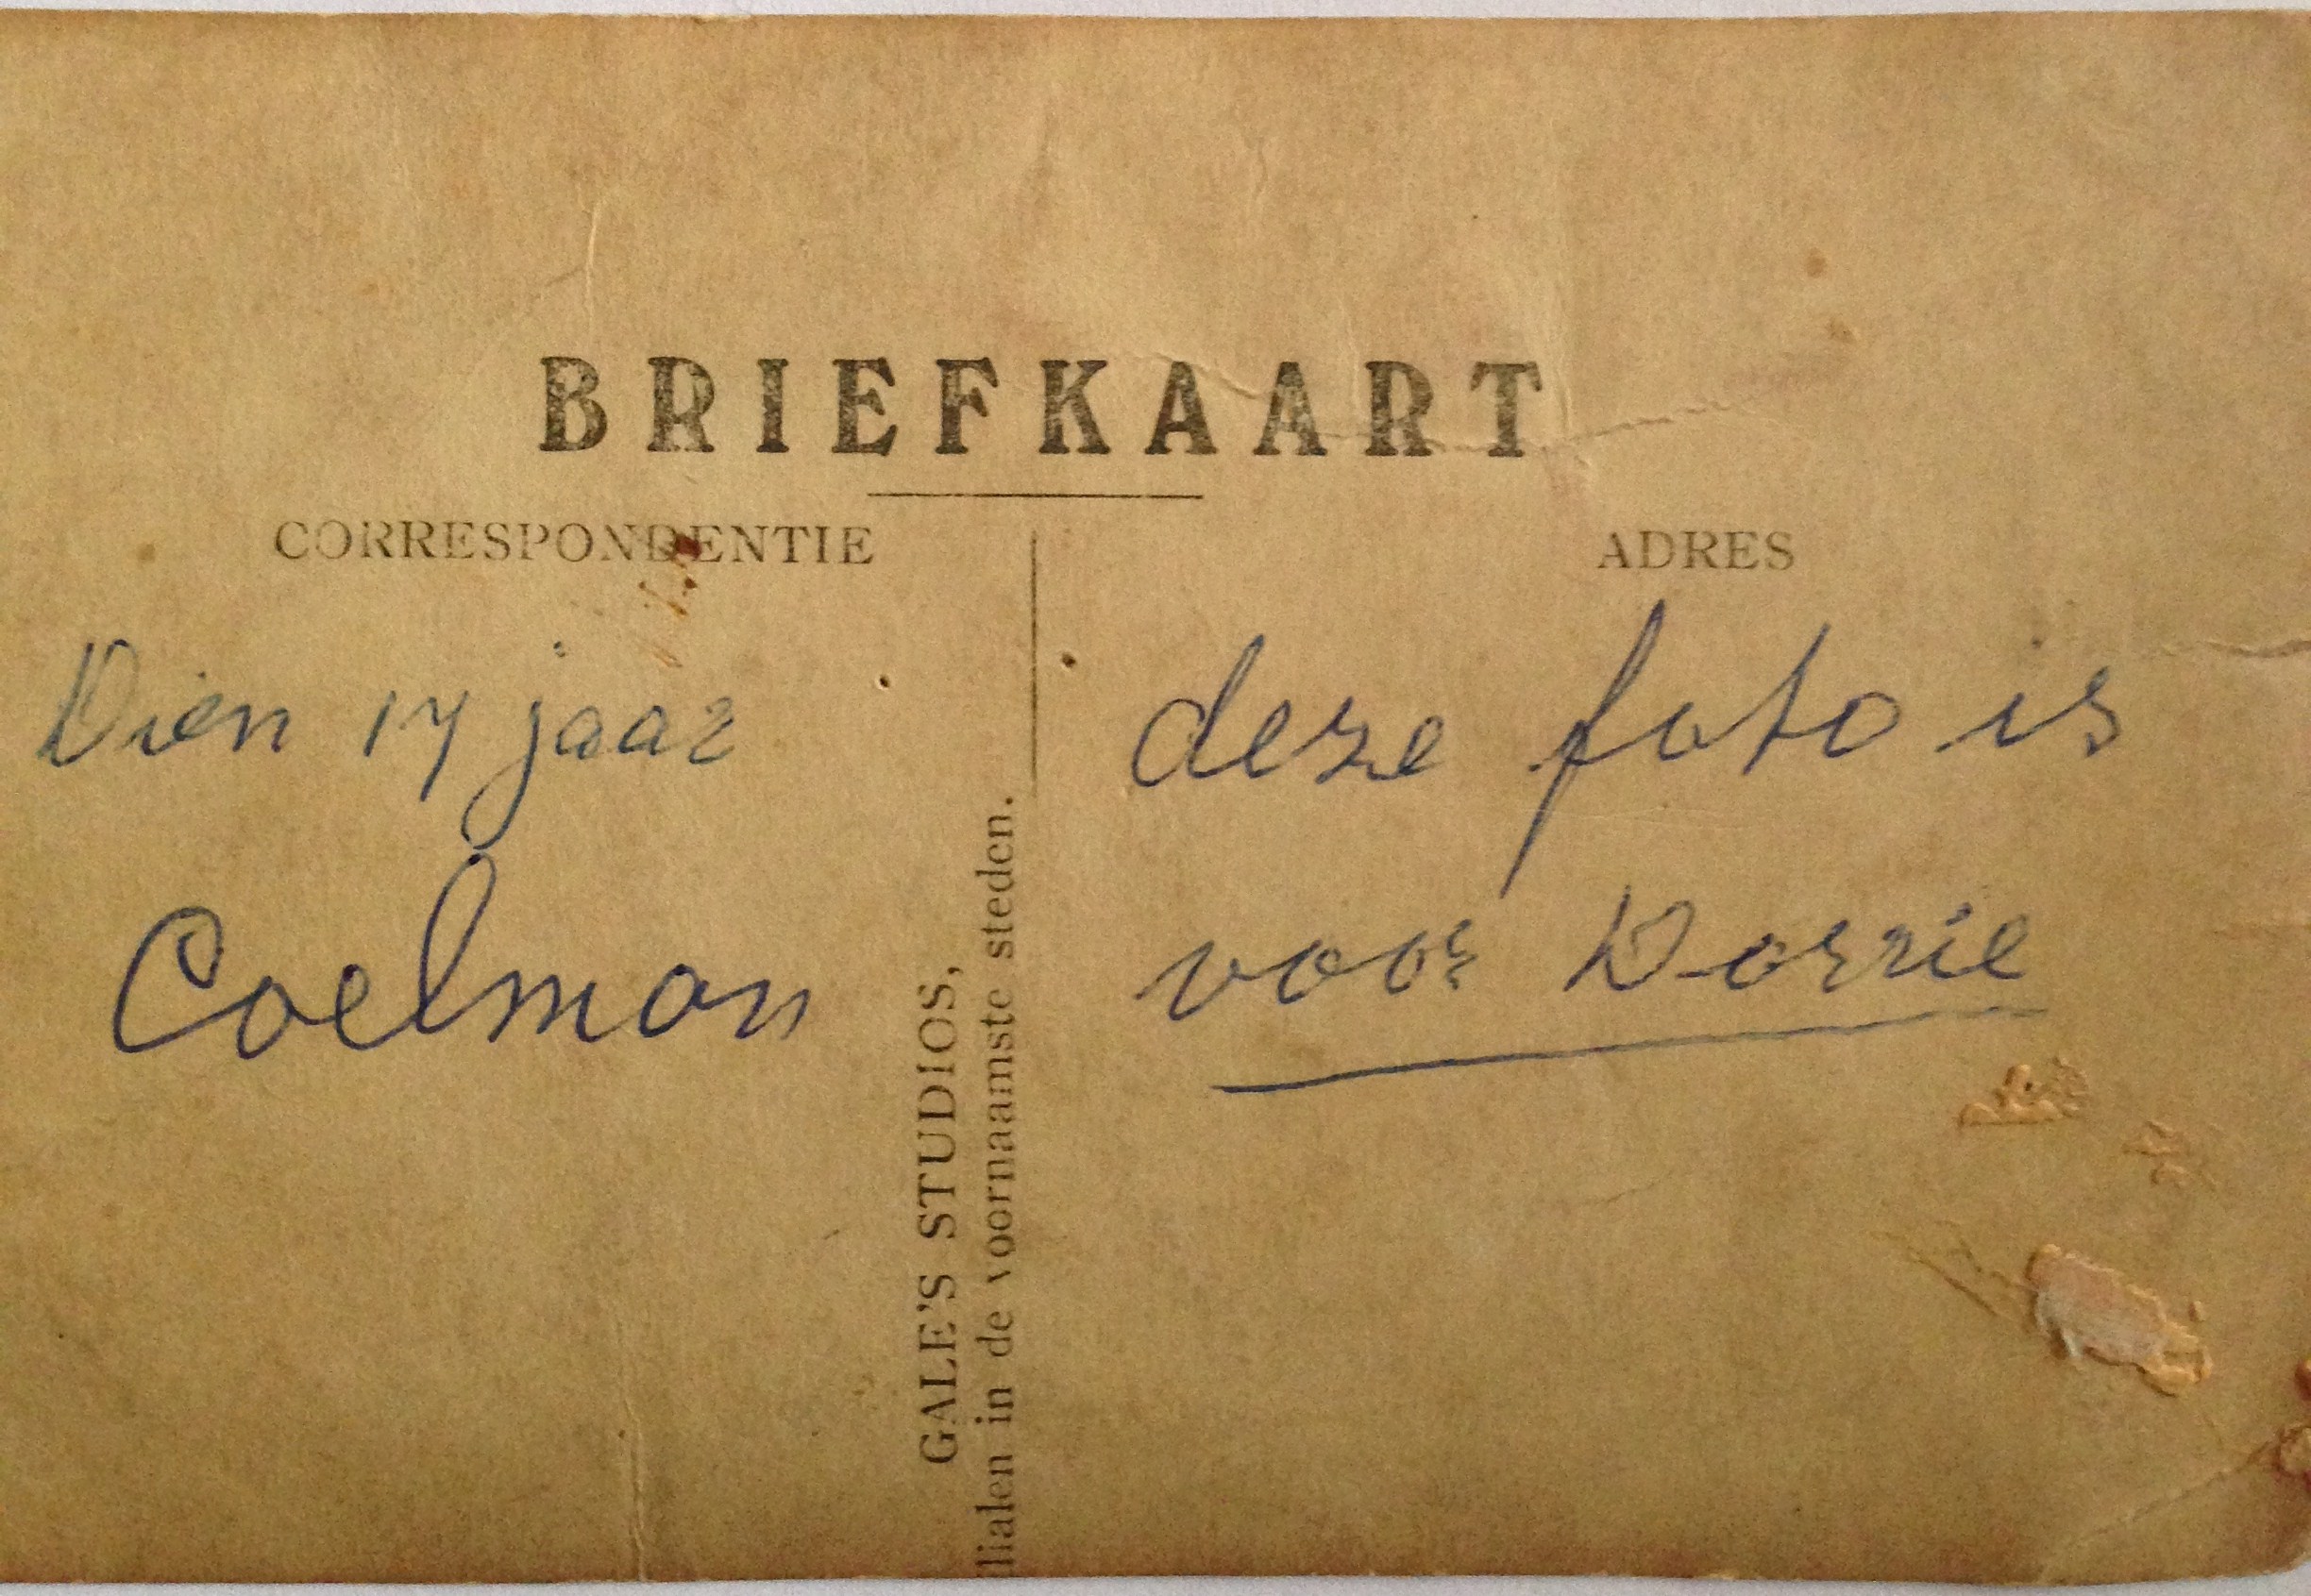 BRIEFKAART
CORRESPONDENTIE
ADRES
Dien 17 jaar
Coelman
deze foto is
voor Dorrie
GALE'S STUDIOS,
lialen in de voornaamste steden.